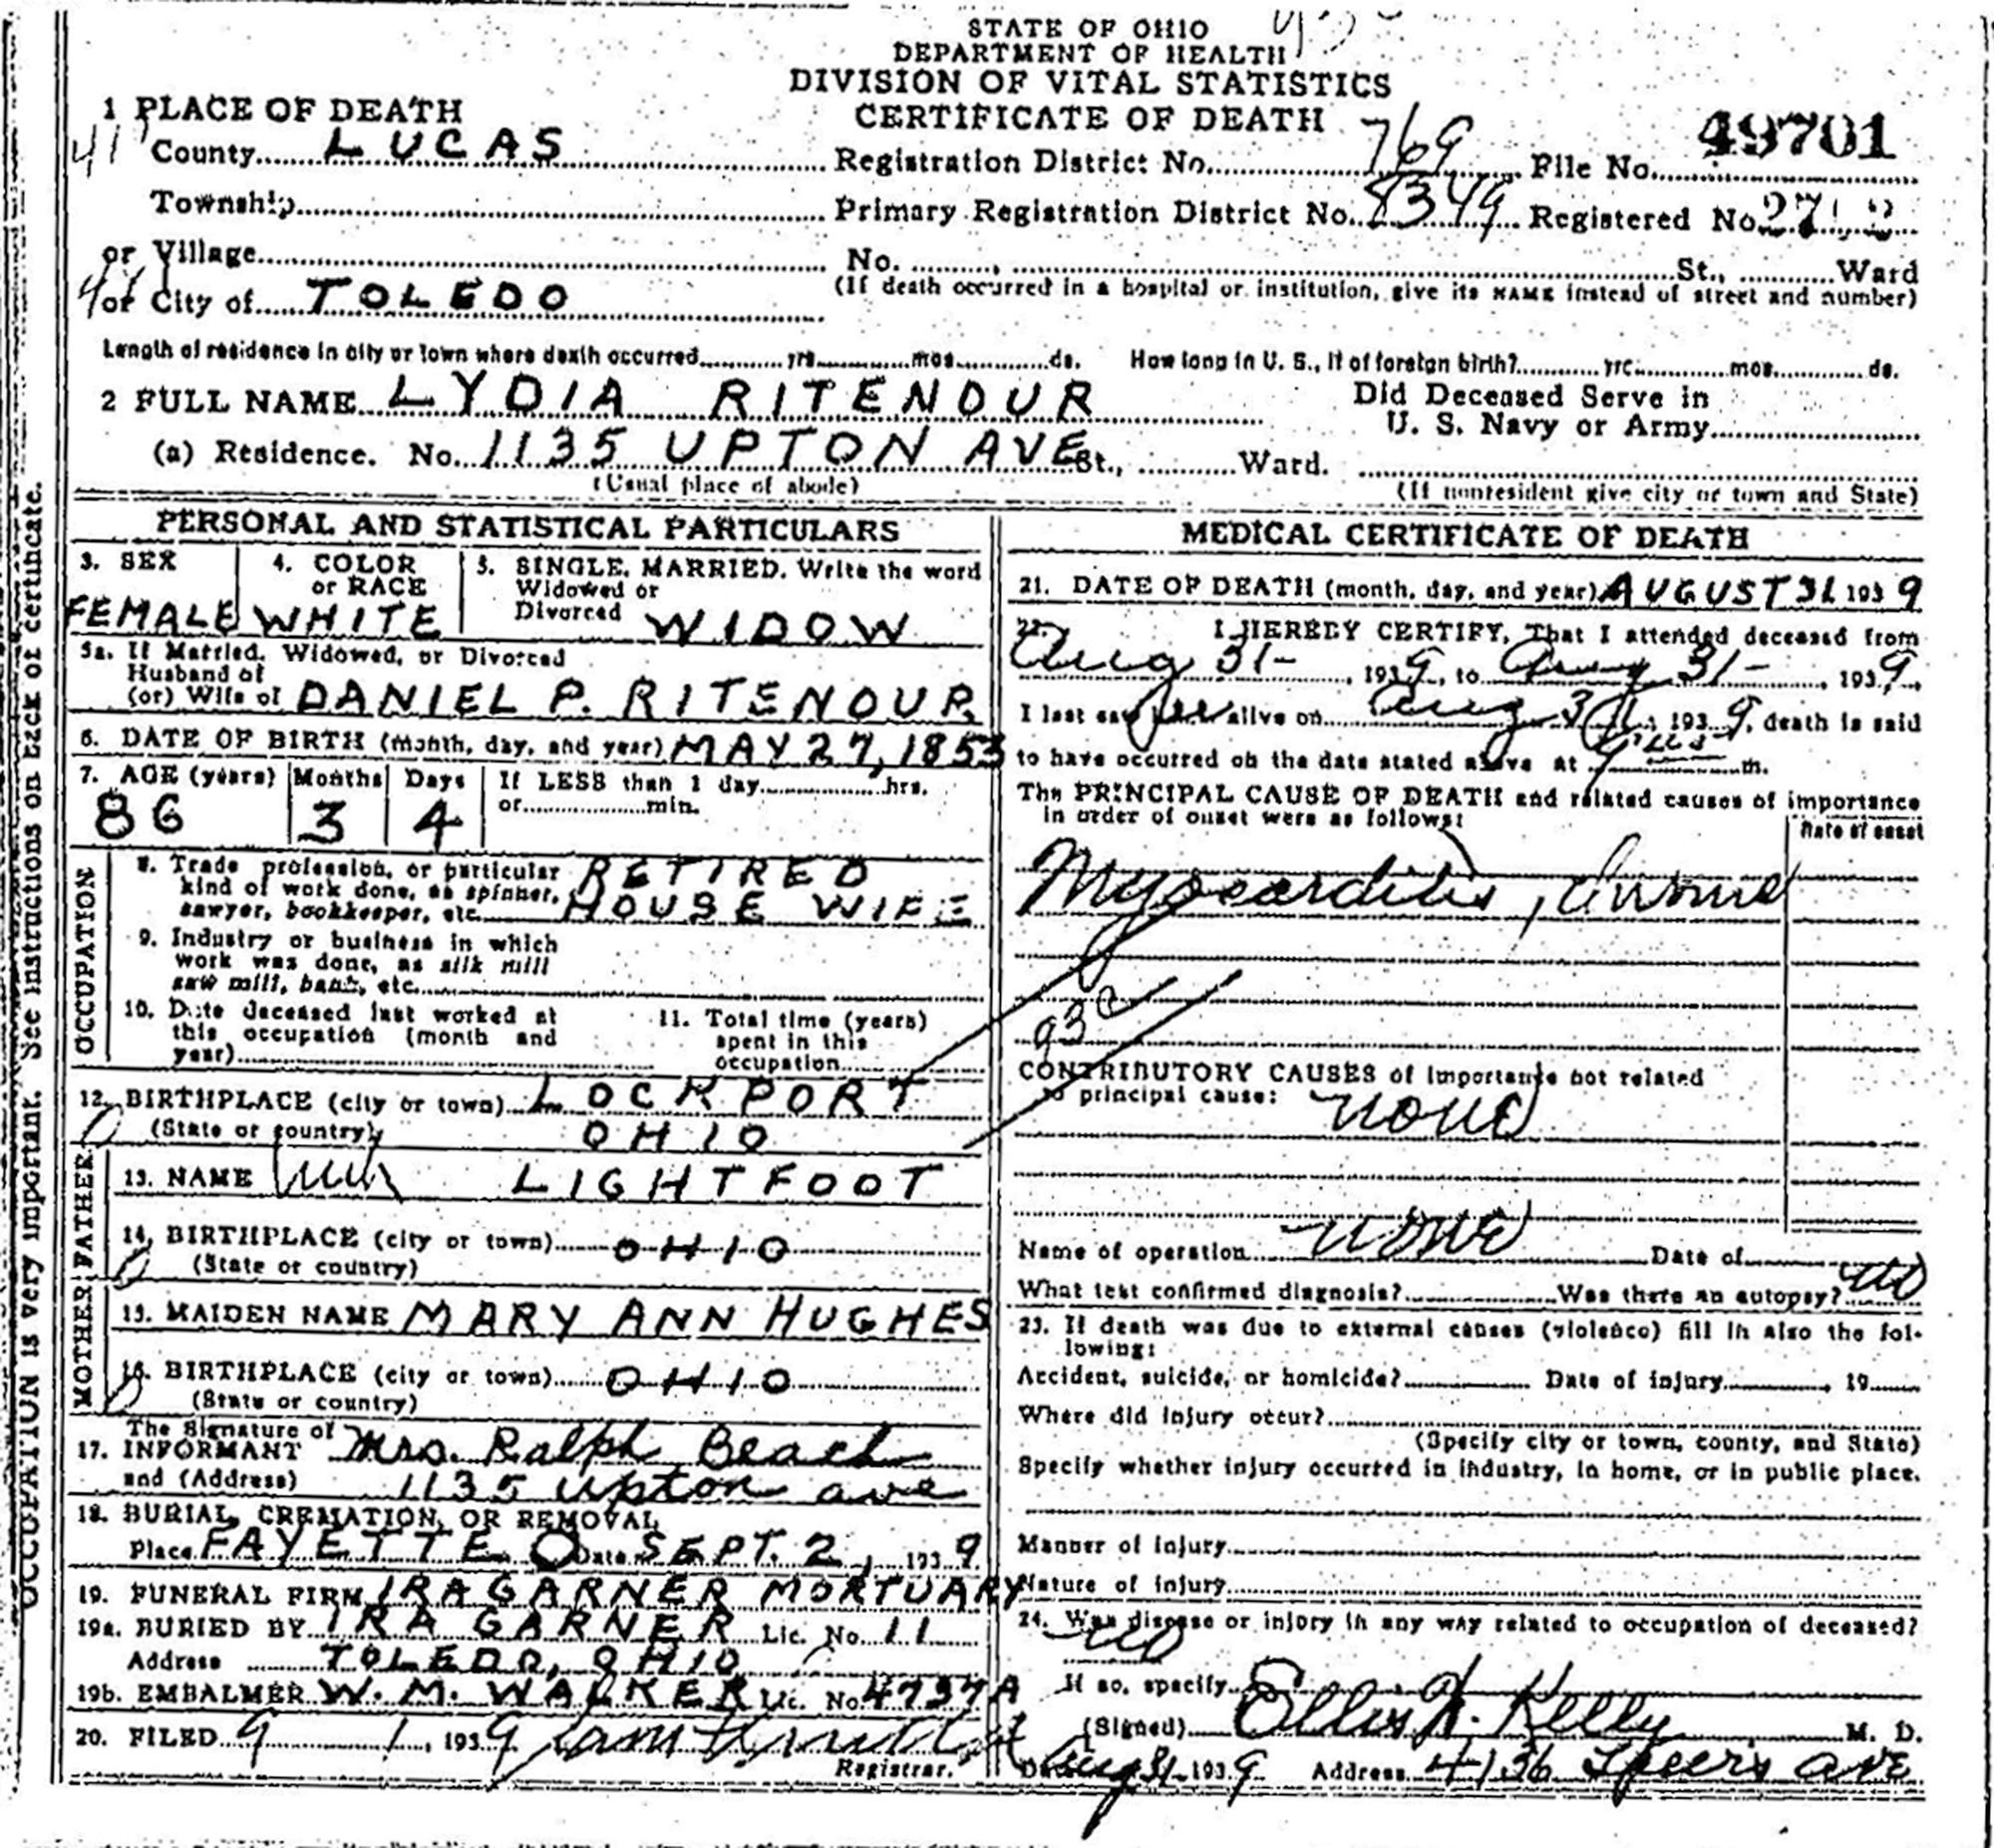 STATE OF OHIO
DEPARTMENT OF HEALTH
DIVISION OF VITAL STATISTICS
CERTIFICATE OF DEATH
49701
1 PLACE OF DEATH
41 County LUCAS Registration District No. 769 File No.
Township Primary Registration District No. 8349 Registered No.
or Village No. , St., Ward
or City of TOLEDO (If death occurred in a hospital or institution, give its NAME instead of street and number)
Length of residence in city or town where death occurred yrs. mos. ds. How long in U. S., if of foreign birth? yrs. mos. ds.
2 FULL NAME LYDIA RITENOUR Did Deceased Serve in
U. S. Navy or Army
(a) Residence. No. 1135 UPTON AVE St., Ward.
(Usual place of abode) (If nonresident give city or town and State)
PERSONAL AND STATISTICAL PARTICULARS
3. SEX
FEMALE
4. COLOR
or RACE
WHITE
5. SINGLE, MARRIED, Write the word
Widowed or
Divorced WIDOW
5a. If Married, Widowed, or Divorced
Husband of
(or) Wife of DANIEL P. RITENOUR
6. DATE OF BIRTH (month, day, and year) MAY 27, 1853
7. AGE (years) Months Days If LESS than 1 day hrs.
or min.
86 3 4
OCCUPATION
8. Trade profession, or particular
kind of work done, as spinner,
sawyer, bookkeeper, etc. RETIRED
HOUSE WIFE
9. Industry or business in which
work was done, as silk mill
saw mill, bank, etc.
10. Date deceased last worked at
this occupation (month and
year)
11. Total time (years)
spent in this
occupation
12. BIRTHPLACE (city or town) LOCKPORT
(State or country) OHIO
FATHER
13. NAME LIGHTFOOT
14. BIRTHPLACE (city or town) OHIO
(State or country)
MOTHER
15. MAIDEN NAME MARY ANN HUGHES
16. BIRTHPLACE (city or town) OHIO
(State or country)
The Signature of
17. INFORMANT Mrs. Ralph Beach
and (Address) 1135 Upton ave
18. BURIAL, CREMATION, OR REMOVAL
Place FAYETTE O Date SEPT. 2, 1939
19. FUNERAL FIRM IRA GARNER MORTUARY
19a. BURIED BY IRA GARNER Lic. No. 11
Address TOLEDO, OHIO
19b. EMBALMER W. M. WALKER Lic. No. 4737A
20. FILED 9 1, 1939
Registrar.
MEDICAL CERTIFICATE OF DEATH
21. DATE OF DEATH (month, day, and year) AUGUST 31 1939
22. I HEREBY CERTIFY, That I attended deceased from
Aug 31-, 1939, to Aug 31-, 1939,
I last saw her alive on Aug 31, 1939, death is said
to have occurred on the date stated above at m.
The PRINCIPAL CAUSE OF DEATH and related causes of importance
in order of onset were as follows:
Date of onset
Myocarditis, Chronic
93c
CONTRIBUTORY CAUSES of importance not related
to principal cause:
none
Name of operation none Date of
What test confirmed diagnosis? Was there an autopsy? no
23. If death was due to external causes (violence) fill in also the fol-
lowing:
Accident, suicide, or homicide? Date of injury , 19
Where did injury occur?
(Specify city or town, county, and State)
Specify whether injury occurred in industry, in home, or in public place.
Manner of injury
Nature of injury
24. Was disease or injury in any way related to occupation of deceased?
no
If so, specify
(Signed) Ellis N. Kelly M. D.
Date Aug 31 1939 Address 4136 Speers ave
OCCUPATION is very important. See instructions on back of certificate.